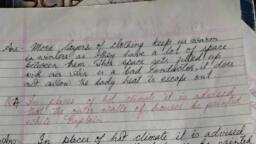 Ans- More layers of clothing keep us warm
in winters as they have a lot of space
between them. This space gets filled up
with air. Air is a bad conductor, it does
not allow the body heat to escape out.
Q. In places of hot climate it is advised
that the outer walls of houses be painted
white. Explain.
Ans- In places of hot climate it is advised